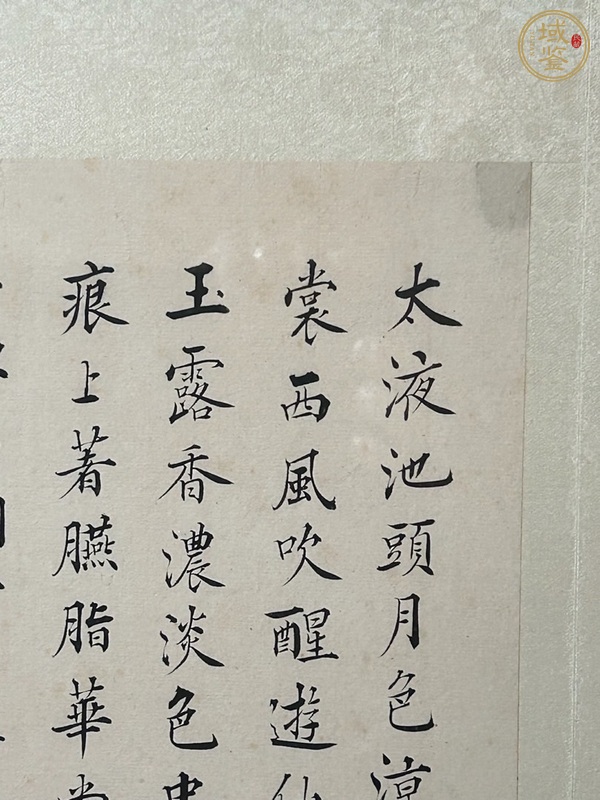 太液池頭月色涼
裳西風吹醒遊仙
玉露香濃淡色
痕上著臙脂華
域鉴